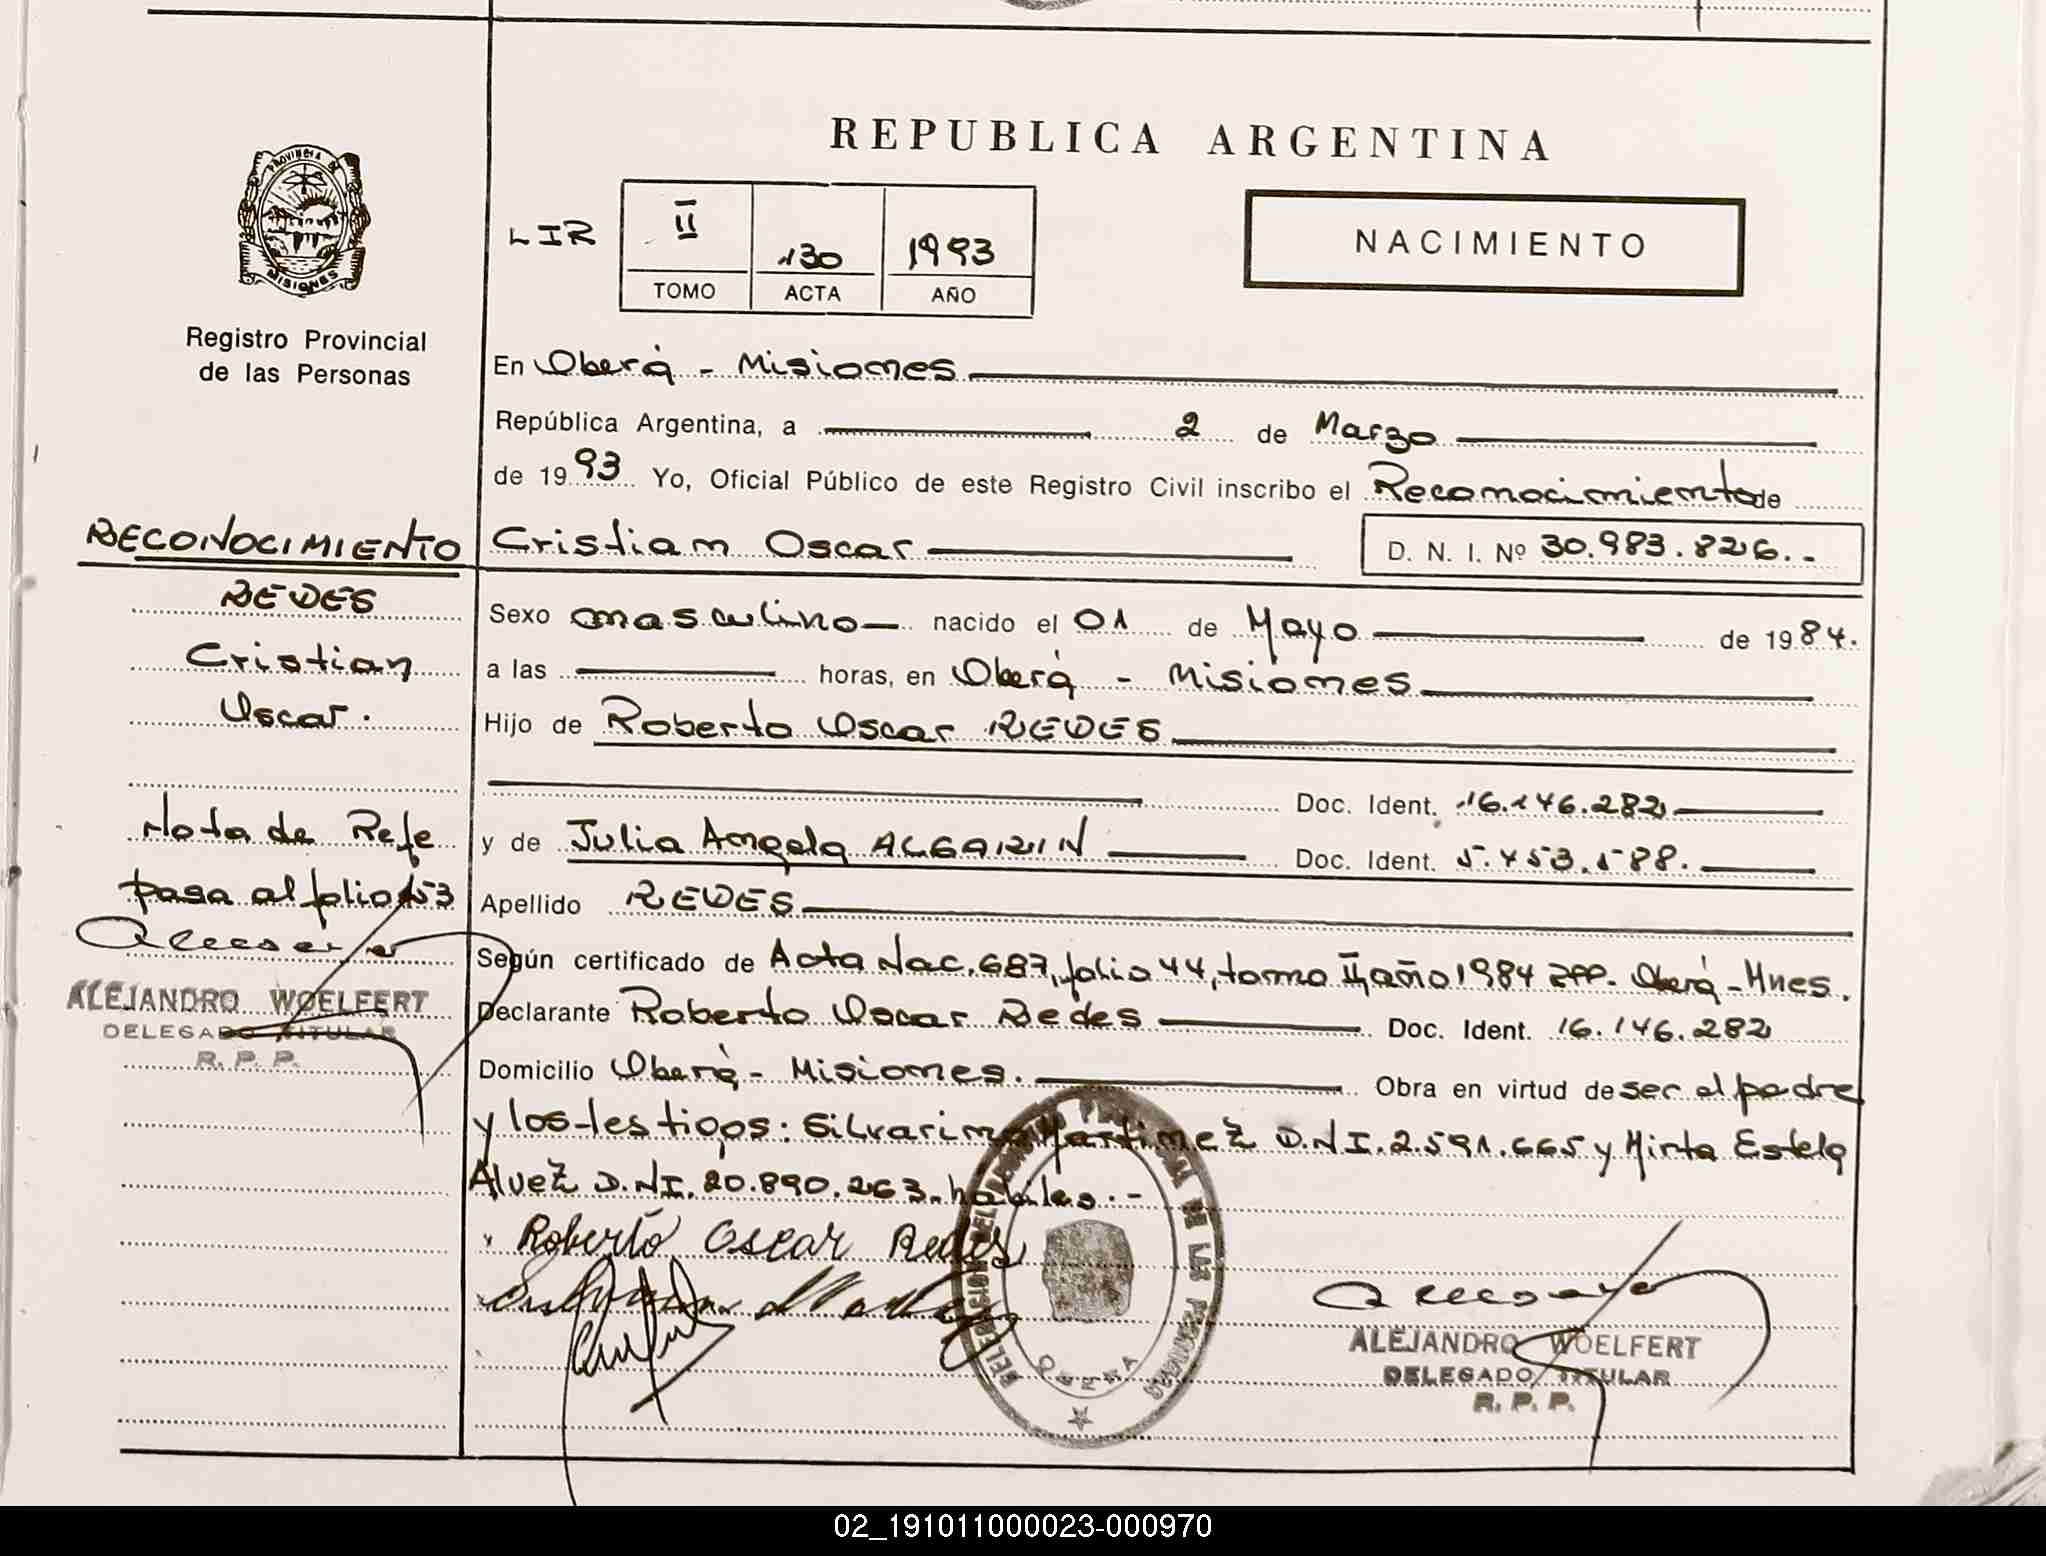 REPUBLICA ARGENTINA
PROVINCIA DE
MISIONES
Registro Provincial
de las Personas
LIR
II 130 1993
TOMO ACTA AÑO
NACIMIENTO
En Oberá - Misiones
República Argentina, a 2 de Marzo
de 1993 Yo, Oficial Público de este Registro Civil inscribo el Reconocimiento de
Cristian Oscar D. N. I. Nº 30.983.826.-
Sexo masculino nacido el 01 de Mayo de 1984.
a las horas, en Oberá - Misiones
Hijo de Roberto Oscar REDES
Doc. Ident. 16.146.282
y de Julia Angela ALGARIN Doc. Ident. 5.453.588.
Apellido REDES
Según certificado de Acta Nac. 687, folio 44, tomo II, año 1984 RPP. Oberá - Mnes.
Declarante Roberto Oscar Redes Doc. Ident. 16.146.282
Domicilio Oberá - Misiones. Obra en virtud de ser el padre
y los testigos: Silvarino Martinez D.N.I. 2.591.665 y Mirta Estela
Alvez D.N.I. 20.890.263. habiles.-
Roberto Oscar Redes
DELEGACION DE LAS PERSONAS
OBERA
ALEJANDRO WOELFERT
DELEGADO TITULAR
R. P. P.
RECONOCIMIENTO
REDES
Cristian
Oscar.
Nota de Refe
pasa al folio 153
ALEJANDRO WOELFERT
DELEGADO TITULAR
R. P. P.
02_191011000023-000970